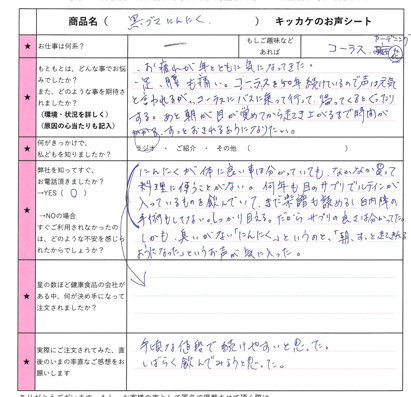 商品名（ 黒ゴマにんにく ） キッカケのお声シート
★ お仕事は何系？ もしご趣味など あれば コーラス、
★ もともとは、どんな事でお悩
みでしたか？
また、どのような事を期待され
ましたか？
（環境・状況を詳しく）
（原因の心当たりも記入）
・お疲れが年とともに気になってきた。
・足、腰も痛い。コーラスを40年続けているので声は元気
と言われるが、コーラスにバスに乗って行って、帰ってくるとぐったり
する。あと朝が目が覚めてから起き上がるまで時間が
かかる。すっとおきれるようになりたい。
★ 何がきっかけで、
私どもを知りましたか？
ラジオ ・ ご紹介 ・ その他 （ ）
★ 弊社を知ってすぐ、
お電話頂きましたか？
→YES（ 〇 ）
→NOの場合
すぐご利用されなかったの
は、どのような不安を感じら
れたからでしょうか？
にんにくが体に良い事は分かっていても、なかなか買って
料理に使うことがない。何年も目のサプリでルテインが
入っているものを飲んでいて、まだ楽譜も読めるし白内障の
手術もしてない。しっかり目える。だから サプリの良さは分かってた。
しかも、臭いがない「にんにく」というのと、「朝、すっと起き れる
ようになった」というお声が気に入った。
★ 星の数ほど健康食品の会社が
ある中、何が決め手になって
注文されましたか？
★ 実際にご注文されてみた、直
後のいまの率直なご感想をお
願いします
手頃な値段で続けやすいと思った。
しばらく飲んでみようと思った。